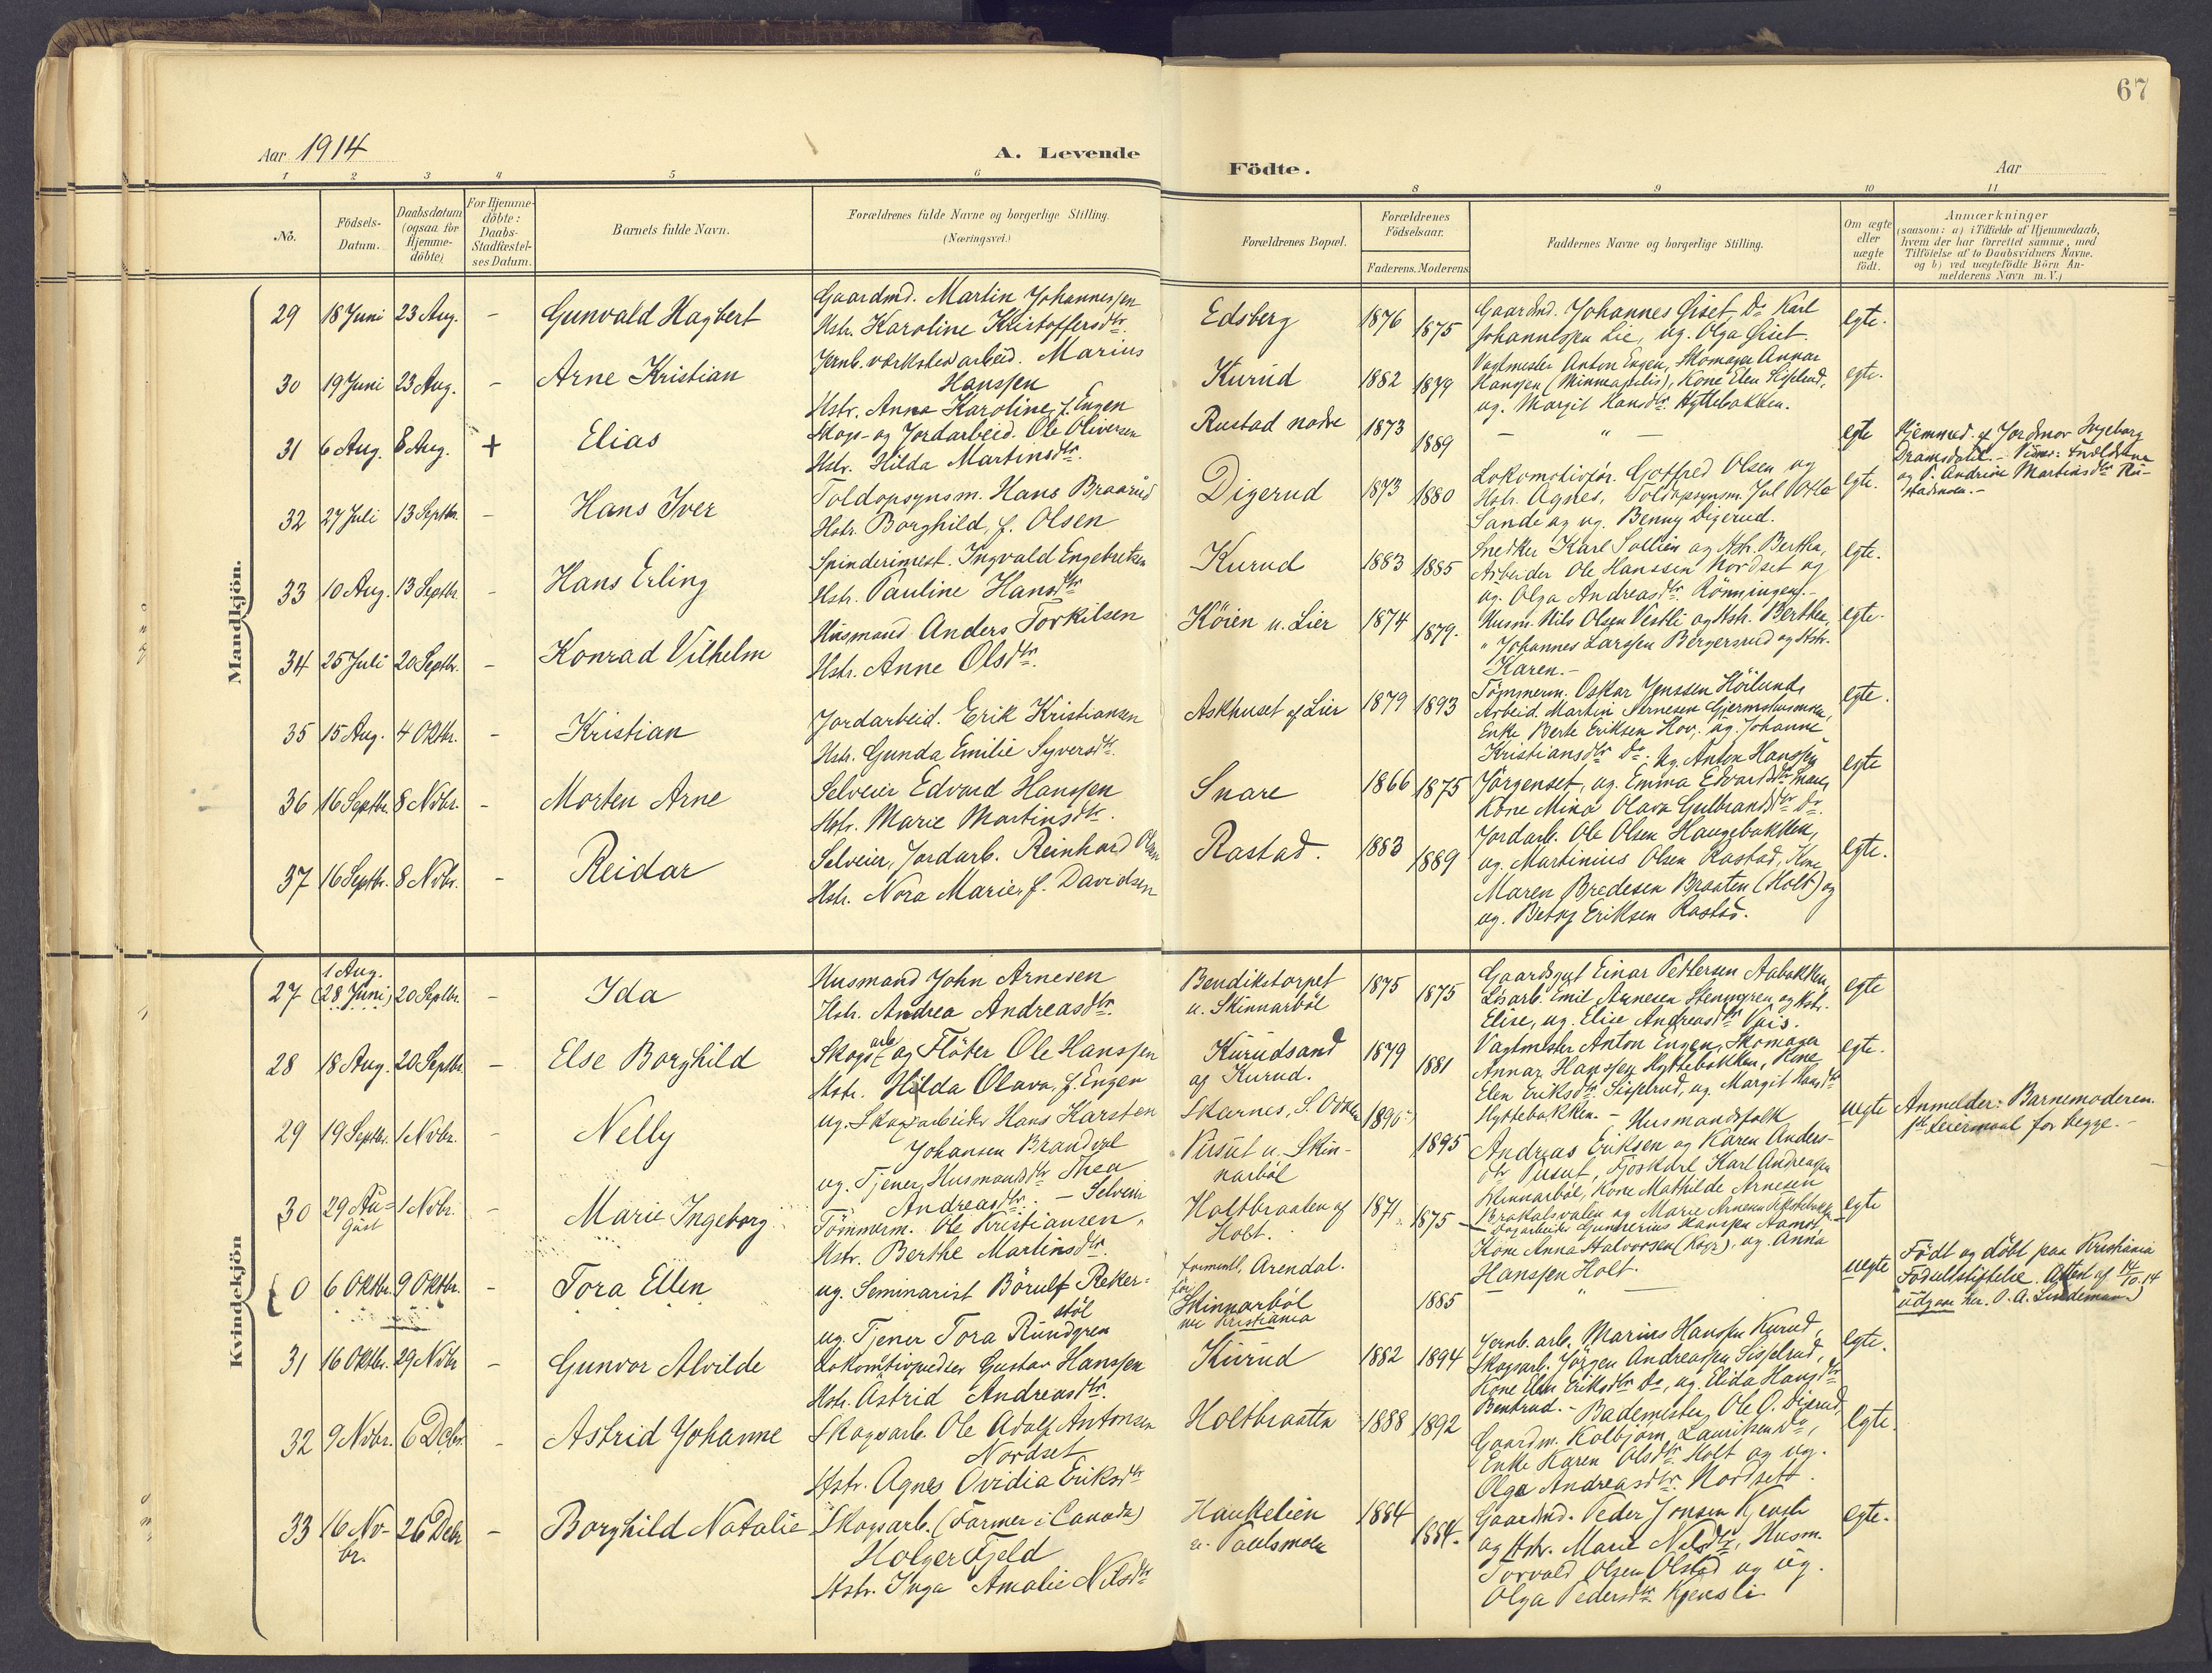 67
Aar 1914
A. Levende
Födte.
Aar
1 2 3 4 5 6 8 9 10 11
No.
Födsels-Datum.
Daabsdatum (ogsaa for Hjemme-döbte)
For Hjemme-döbte: Daabs-Stadfæstel-ses Datum.
Barnets fulde Navn.
Forældrenes fulde Navne og borgerlige Stilling.
(Næringsvei.)
Forældrenes Bopæl.
Forældrenes Födselsaar.
Faderens. Moderens
Faddernes Navne og borgerlige Stilling.
Om ægte eller uægte födt.
Anmærkninger
(saasom: a) i Tilfælde af Hjemmedaab,
hvem der har forrettet samme, med
Tilföielse af to Daabsvidners Navne.
og b) ved uægtefödte Börn An-
melderens Navn m. V.)
Mandkjön.
29 18 Juni 23 Aug. - Gunvald Hagbert
Gaardmd. Martin Johannessen
Hstr. Karoline Kristoffersdtr.
Edsberg 1876 1875
Gaardmd. Johannes Giset Do Karl
Johannessen Lie, ug. Olga Giset.
egte.
30 19 Juni 23 Aug. - Arne Kristian
Jernb. værksted arbeid. Marius
Hanssen
Hstr. Anna Karoline, f. Engen
Kurud 1882 1879
Vagtmester Anton Engen, Skomager Annar
Hanssen (Minneapolis), Kone Elen Sisselrud,
ug. Margit Hansdtr. Hyttebakken.
egte.
31 6 Aug. 8 Aug. + Elias
Skogs- og Jordarbeid. Ole Oliversen
Hstr. Hilda Martinsdtr.
Rustad nodre 1873 1889
- " -
egte
Hjemmed. af Jordmor Ingeborg
og P. Andrine Martinsdtr Ru-
stadmoen.-
32 27 Juli 13 Septbr. - Hans Iver
Toldopsynsm. Hans Braarud
Hstr. Borghild, f. Olsen
Digerud 1873 1880
Lokomotivför. Gotfred Olsen og
Hstr. Agnes, Toldopsynsm. Jul
Sande og ug. Benny Digerud.
egte.
33 10 Aug. 13 Septbr. - Hans Erling
Spinderimest. Ingvald Engebretsen
Hstr. Pauline Hansdtr
Kurud 1883 1885
Snedker Karl Sollien og Hstr. Bertha,
Arbeider Ole Hanssen Nordset og
ug. Olga Andreasdtr Rönningen.-
egte.
34 25 Juli 20 Septbr. - Konrad Vilhelm
Husmand Anders Torkilsen
Hstr. Anne Olsdtr.
Köien u. Lier 1874 1879.
Husm. Nils Olsen Vestli og Hstr. Berthea,
" Johannes Larssen Bergersrud og Hstr.
Karen.-
egte.
35 15 Aug. 4 Oktbr. - Kristian
Jordarbeid. Erik Kristiansen
Hstr. Gunda Emilie Syversdtr.
Askhuset af Lier 1879 1893
Tömmerm. Oskar Jenssen Höilund,
Arbeid. Martin Arnesen Gjermshusmoen,
Enke Berte Eriksen Hov, ug. Johanne
Kristiansdtr Do.
egte.
36 16 Septbr. 8 Nvbr. - Morten Arne
Selveier Edvard Hanssen
Hstr. Marie Martinsdtr.
Snare 1866 1875
Ug. Anton Hanssen
Jörgenset, ug. Emma Edvardsdtr Snare,
Kone Mina Olava Gulbrandsdtr Do.
egte
37 16 Septbr. 8 Nvbr. - Reidar
Selveier, Jordarb. Reinhard Olsen
Hstr. Nora Marie, f. Davidsen
Rastad. 1883 1889
Jordarb. Ole Olsen Haugebakken,
ug. Martinius Olsen Rastad, Kone
Maren Bredesen Braaten (Holt) og
ug. Betsy Eriksen Rastad.
egte.
Kvindekjön
27 1 Aug. (28 Juni) 20 Septbr. - Ida
Husmand John Arnesen
Hstr. Andrea Andreasdtr.
Bendikstorpet
u. Skinnarböl
1875 1875
Gaardsgut Einar Pettersen Aabakken,
Lösarb. Emil Arnesen Stenmyren og Hstr.
Elise, ug. Elise Andreasdtr Vais.
egte
28 18 Aug. 20 Septbr. - Else Borghild
Skogsarb. og Flöter Ole Hanssen
Hstr. Hilda Olava, f. Engen
Kurudsand
af Kurud.
1879 1881
Vagtmester Anton Engen, Skomager
Annar Hanssen Hyttebakken, Kone
Elen Eriksdtr Sisselrud, ug. Margit Hansdtr
Hyttebakken.-
egte.
29 19 Septbr. 1 Nvbr. - Nelly
ug. Skogsarbeider Hans Karsten
Johansen Brandval
ug. Tjener, Husmandsdtr Thea
Andreasdtr.
Skarnes, S. Odalen
Pusut u. Skin-
narböl
1895
Husmandsfolk
Andreas Eriksen og Karen Anders-
dtr Pusut, Fjöskarl Karl Andreassen
Skinnarböl, Kone Mathilde Arnesen
uegte
Anmelder: Barnemoderen.
1ste Leiermaal for begge.-
30 29 Au-
gust 1 Nvbr. - Marie Ingeborg
- Selveier
Tömmerm. Ole Kristiansen,
Hstr. Berthe Martinsdtr.
Holtbraaten af
Holt.
1871 1875
Skogarbeider Gunnerius Hanssen Aamot,
Kone Anna Halvorsen (Kogr.), ug. Anna
Hanssen Holt.
egte
0 6 Oktbr. 9 Oktbr. Tora Ellen
ug. Seminarist Börulf Reker-
stöl
ug. Tjener Tora Rundgren
formentl. Arendal.
för
Skinnarböl
nu Kristiania
1885
- " -
uegte
Födt og döbt paa Kristiania
Födselsstiftelse. Attest af 14/10.14
udgaar her. O. A. Lindeman.)
31 16 Oktbr. 29 Nvbr - Gunvor Alvilde
Lokomotivpudser Gustav Hanssen
Hstr. Astrid Andreasdtr.
Kurud 1882 1894
Jernb. arb. Marius Hanssen Kurud,
Skogsarb. Jörgen Andreassen Sisselrud,
Kone Elen Eriksdtr Do, ug. Elida Hansdtr
Bentrud.-
egte.
32 9 Nvbr. 6 Dcbr. - Astrid Johanne
Skogsarb. Ole Adolf Antonsen
Nordset
Hstr. Agnes Ovidia Eriksdtr
Holtbraaten 1888 1892
Bademester Ole O. Digerud,
Gaardm. Kolbjörn Lauritsen Do,
Enke Karen Olsdtr. Holt og ug.
Olga Andreasdtr. Nordsett.
egte.
33 16 No-
br. 26 Dcbr - Borghild Natalie
Skogsarb. (Farmer i Canada)
Holger Fjeld
Hstr. Inga Amalie Nilsdtr
Haukelien
u. Paulsmoen
1884 1884.
Gaardmd. Peder Jonsen Kjensli
og Hstr. Marie Nilsdtr, Husm.
Torvald Olsen Olstad og ug.
Olga Pedersdtr. Kjensli
egte.